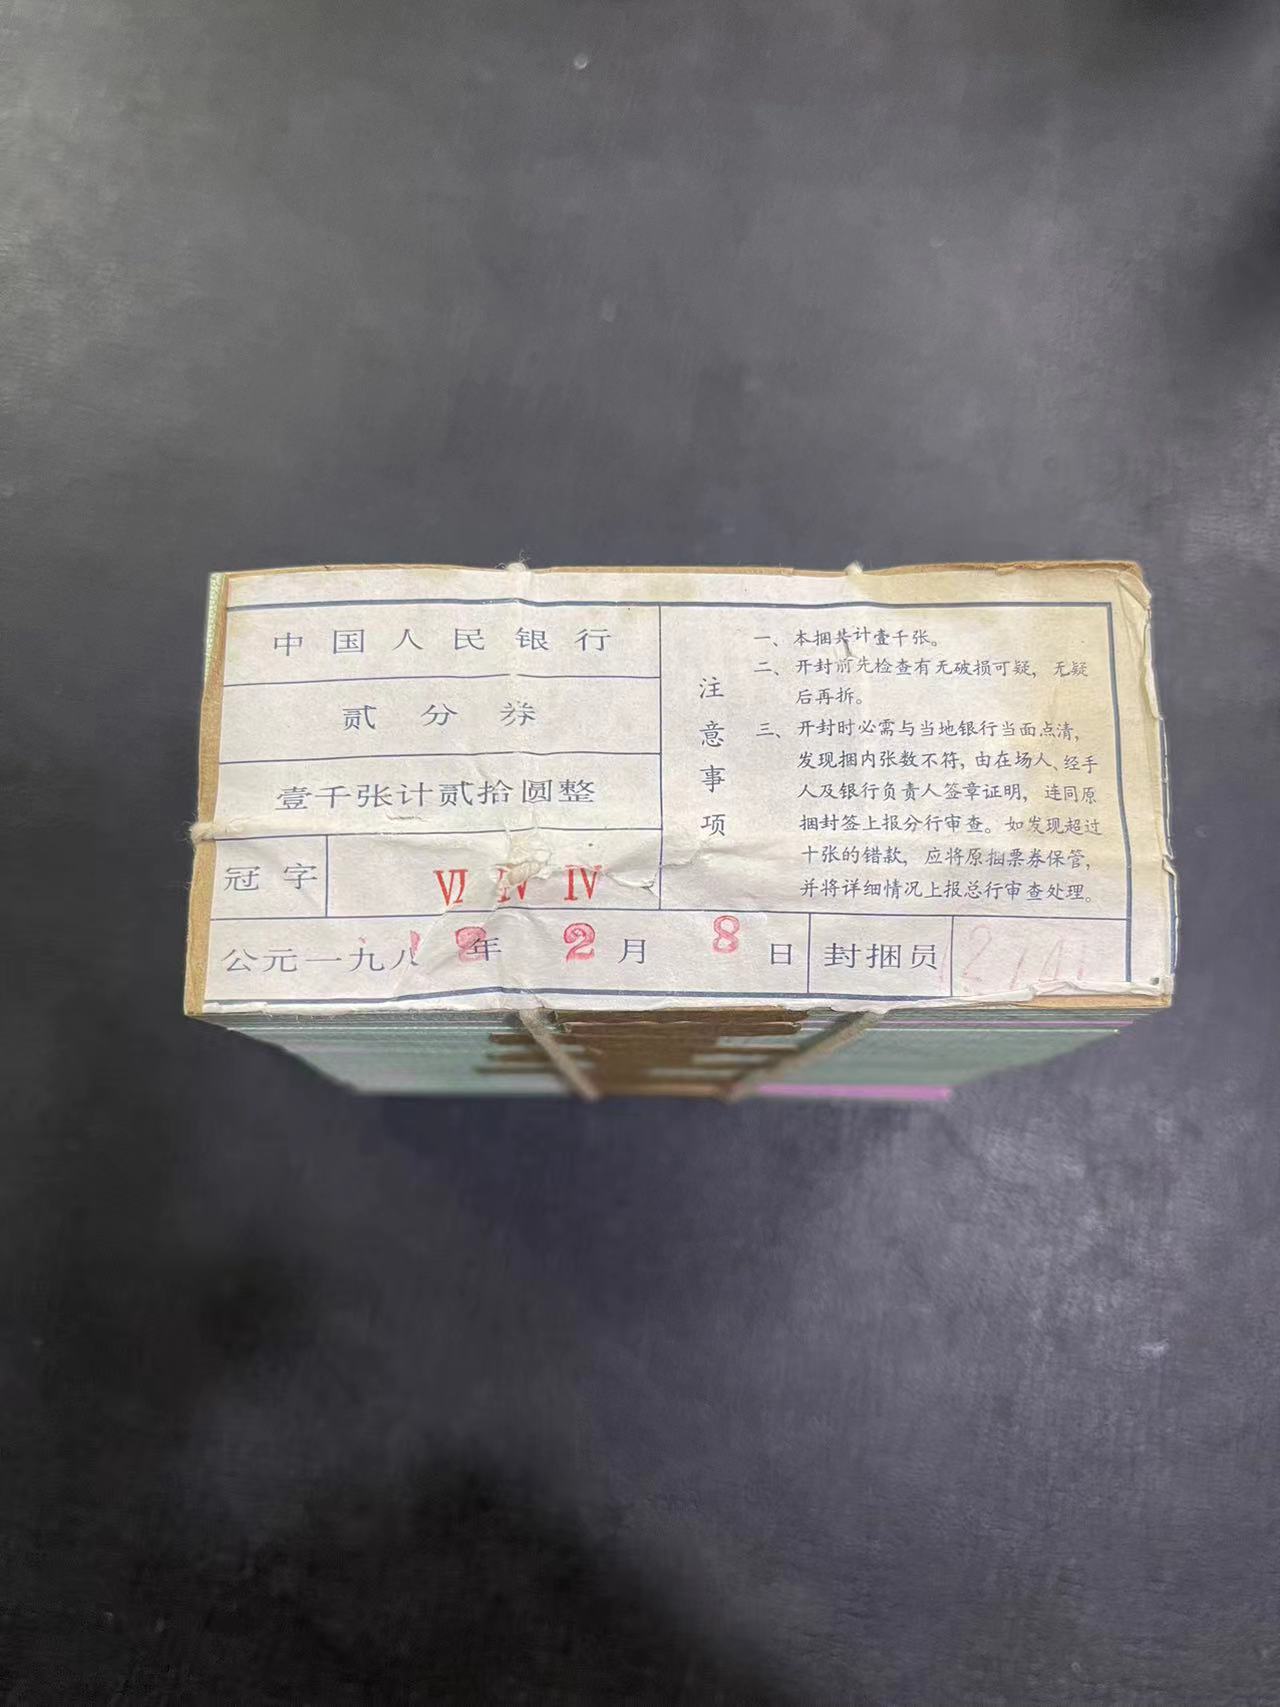 中国人民银行
贰分券
壹千张计贰拾圆整
冠字 VI IV IV
公元一九八2年2月8日 封捆员
注意事项
一、本捆共计壹千张。
二、开封前先检查有无破损可疑，无疑
后再拆。
三、开封时必需与当地银行当面点清，
发现捆内张数不符，由在场人、经手
人及银行负责人签章证明，连同原
捆封签上报分行审查。如发现超过
十张的错款，应将原捆票券保管，
并将详细情况上报总行审查处理。